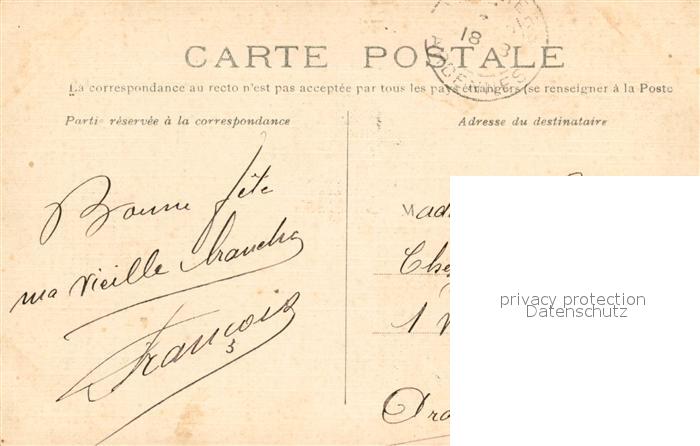 CARTE POSTALE
18 3
ARDENNES
La correspondance au recto n'est pas acceptée par tous les pays étrangers (se renseigner à la Poste
Partie réservée à la correspondance
Adresse du destinataire
Bonne fête
ma vieille branche
François
Mad
Che
1
privacy protection
Datenschutz